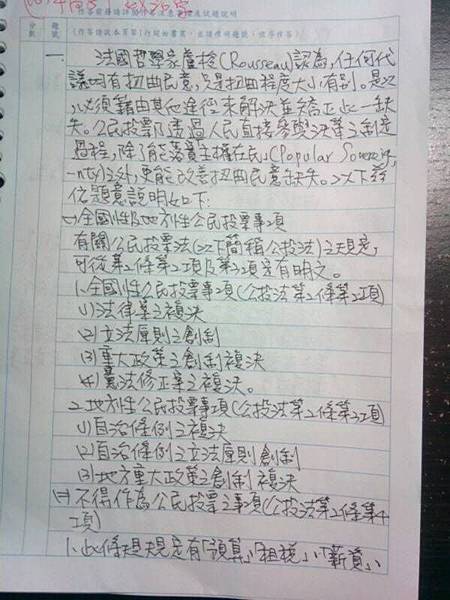 作答前請詳閱作答注意事項及試題說明
分數 題號 (作答請從本頁第1行開始書寫,並請標明題號,依序作答)
一、 法國哲學家盧梭(Rousseau)認為,任何代
議均有扭曲民意,只是扭曲程度大小有別。是以
,必須藉由其他途徑來解決並矯正此一缺
失。公民投票乃透過人民直接參與決策之制定
過程,除了能落實主權在民(Popular Soverei
-nty)之外,更能改善扭曲民意缺失。以下茲
依題意說明如下:
㈠全國性及地方性公民投票事項
有關公民投票法(以下簡稱公投法)之規定,
可後第2條第2項及第3項定有明文。
1.全國性公民投票事項(公投法第2條第2項)
(1)法律案之複決
(2)立法原則之創制
(3)重大政策之創制複決
(4)憲法修正案之複決。
2.地方性公民投票事項(公投法第2條第3項)
(1)自治條例之複決
(2)自治條例之立法原則創制
(3)地方重大政策之創制複決
㈡不得作為公民投票之事項(公投法第2條第4
項)
1.此條規規定有「預算」、「租稅」、「薪資」、